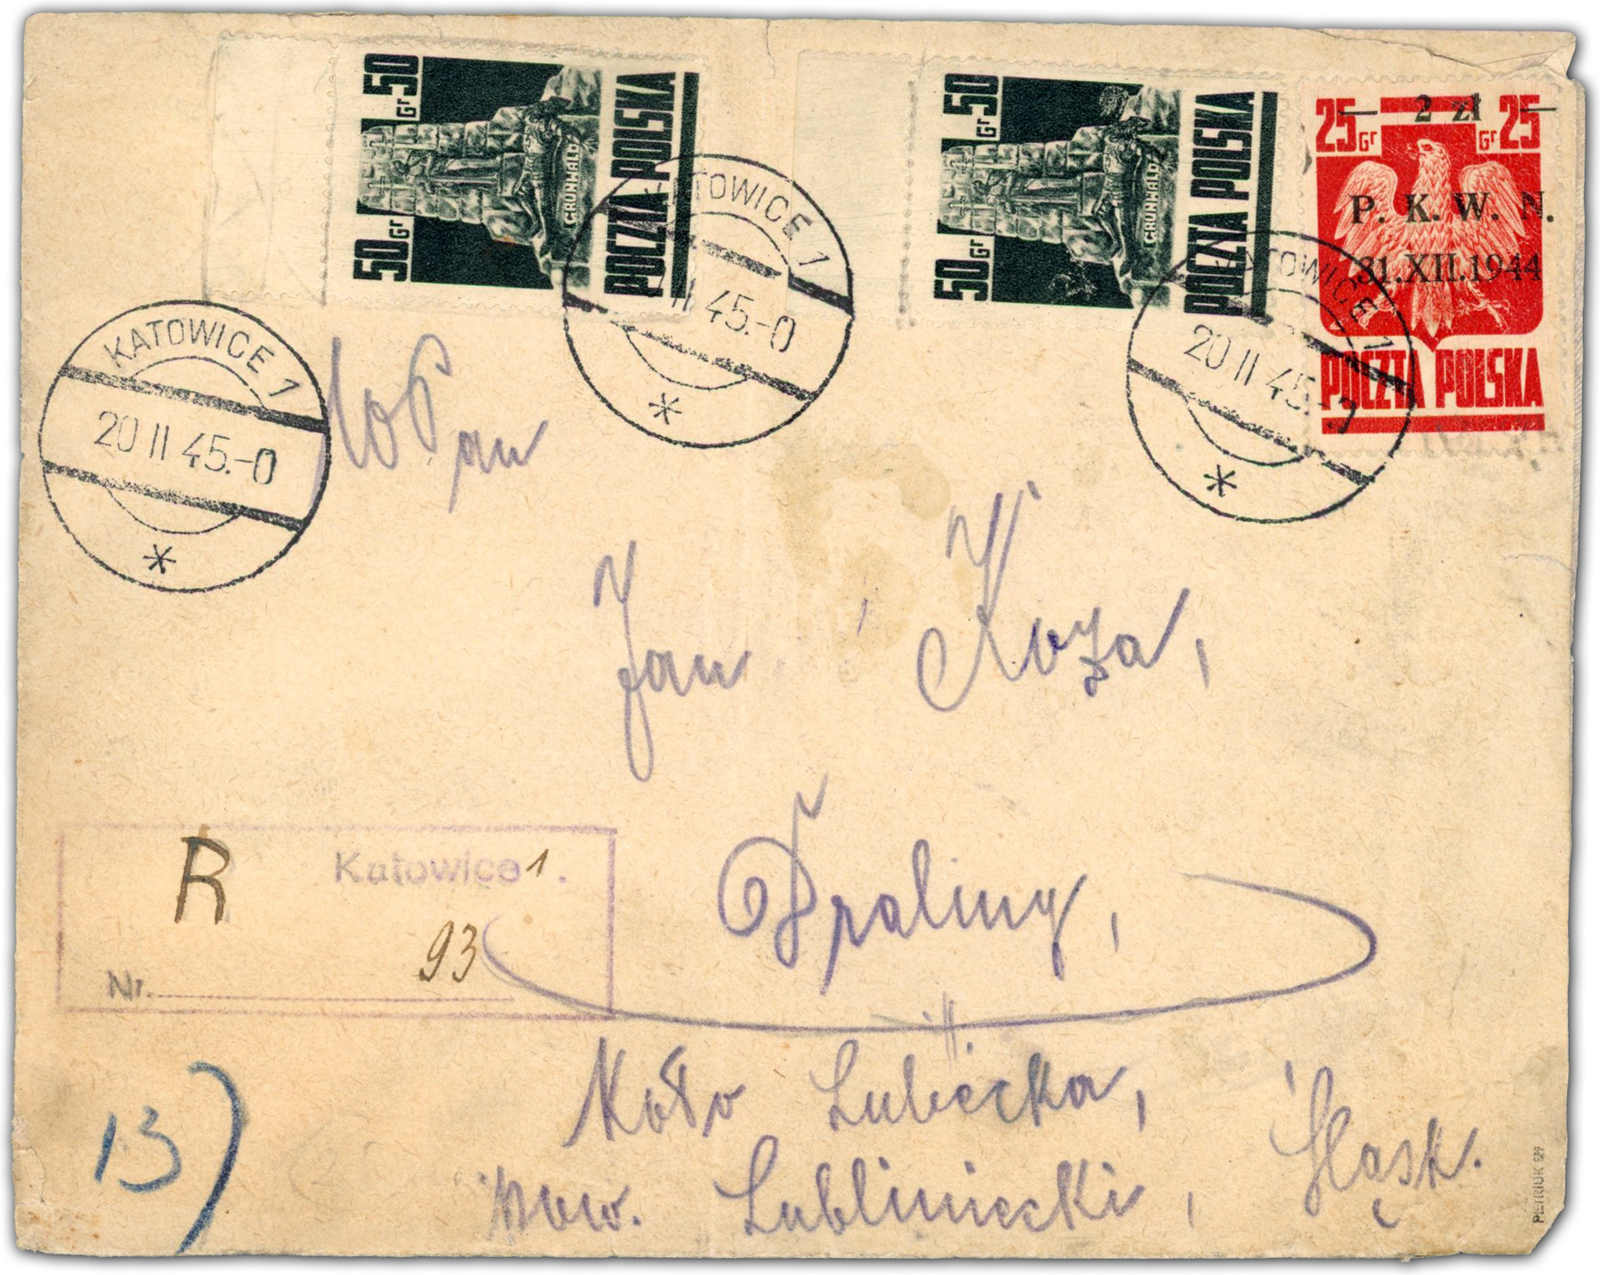 50 Gr 50 Gr
GRUNWALD
POCZTA POLSKA
50 Gr 50 Gr
GRUNWALD
POCZTA POLSKA
25 Gr — 2 zł — Gr 25
P. K. W. N.
31.XII.1944
POCZTA POLSKA
KATOWICE 1
20 II 45.-0
*
KATOWICE 1
II 45.-0
*
KATOWICE 1
20 II 45.-0
*
Pan
Jan Koza,
Draliny,
R Katowice 1.
Nr. 93
Koło Lubecka,
pow. Lubliniecki, Śląsk.
13)
PETRIUK